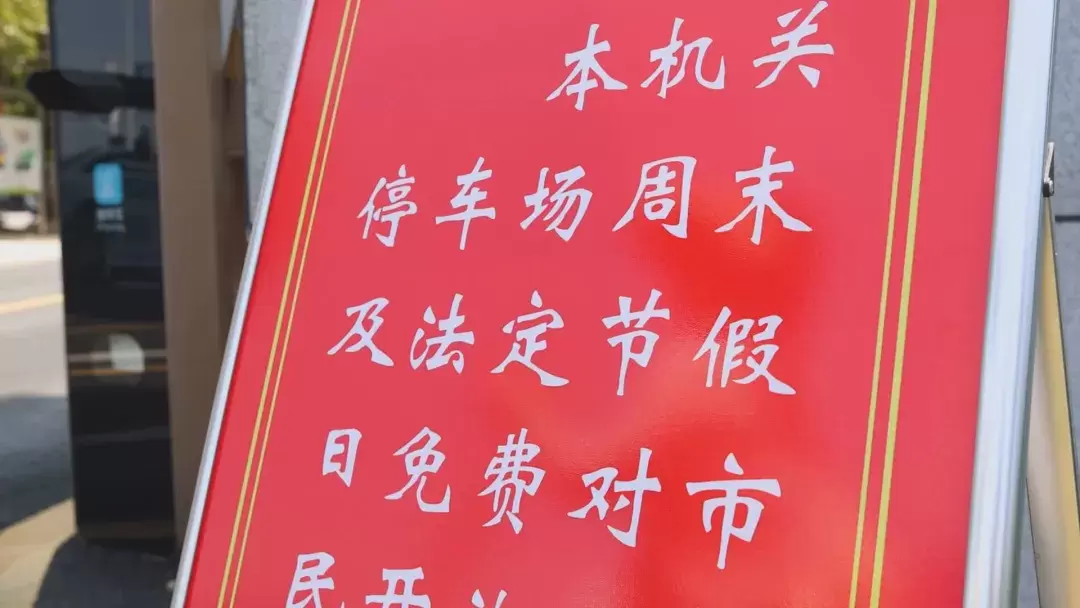 本机关
停车场周末
及法定节假
日免费对市
民开